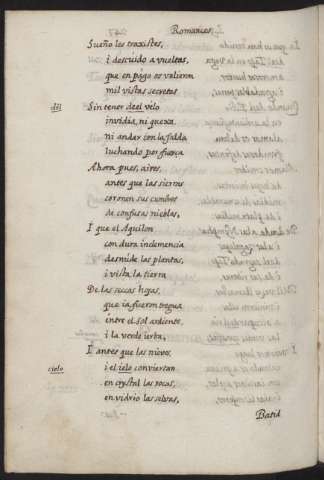 Romances.
Sueño les traxistes,
i descuido a vueltas,
que en pago os valieron
mil vistas secretas
del
Sin tener deel velo
invidia, ni quexa,
ni andar con la falda
luchando por fuerça
Ahora pues, aires,
antes que las sierras
coronen sus cumbres
de confusas nieblas,
I que el Aquilon
con dura inclemencia
desnude las plantas,
i vista la tierra
De las seccas hojas,
que ia fueron tregua
entre el sol ardiente,
i la verde ierba,
I antes que las nieves
cielo
i el ielo conviertan
en crystal las rocas,
en vidrio las selvas,
Batid